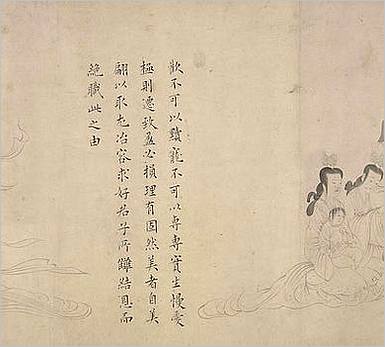 歡不可以黷寵不可以專專實生慢愛
極則遷致盈必損理有固然美者自美
翩以取尤冶容求好君子所讎結恩而
絶職此之由